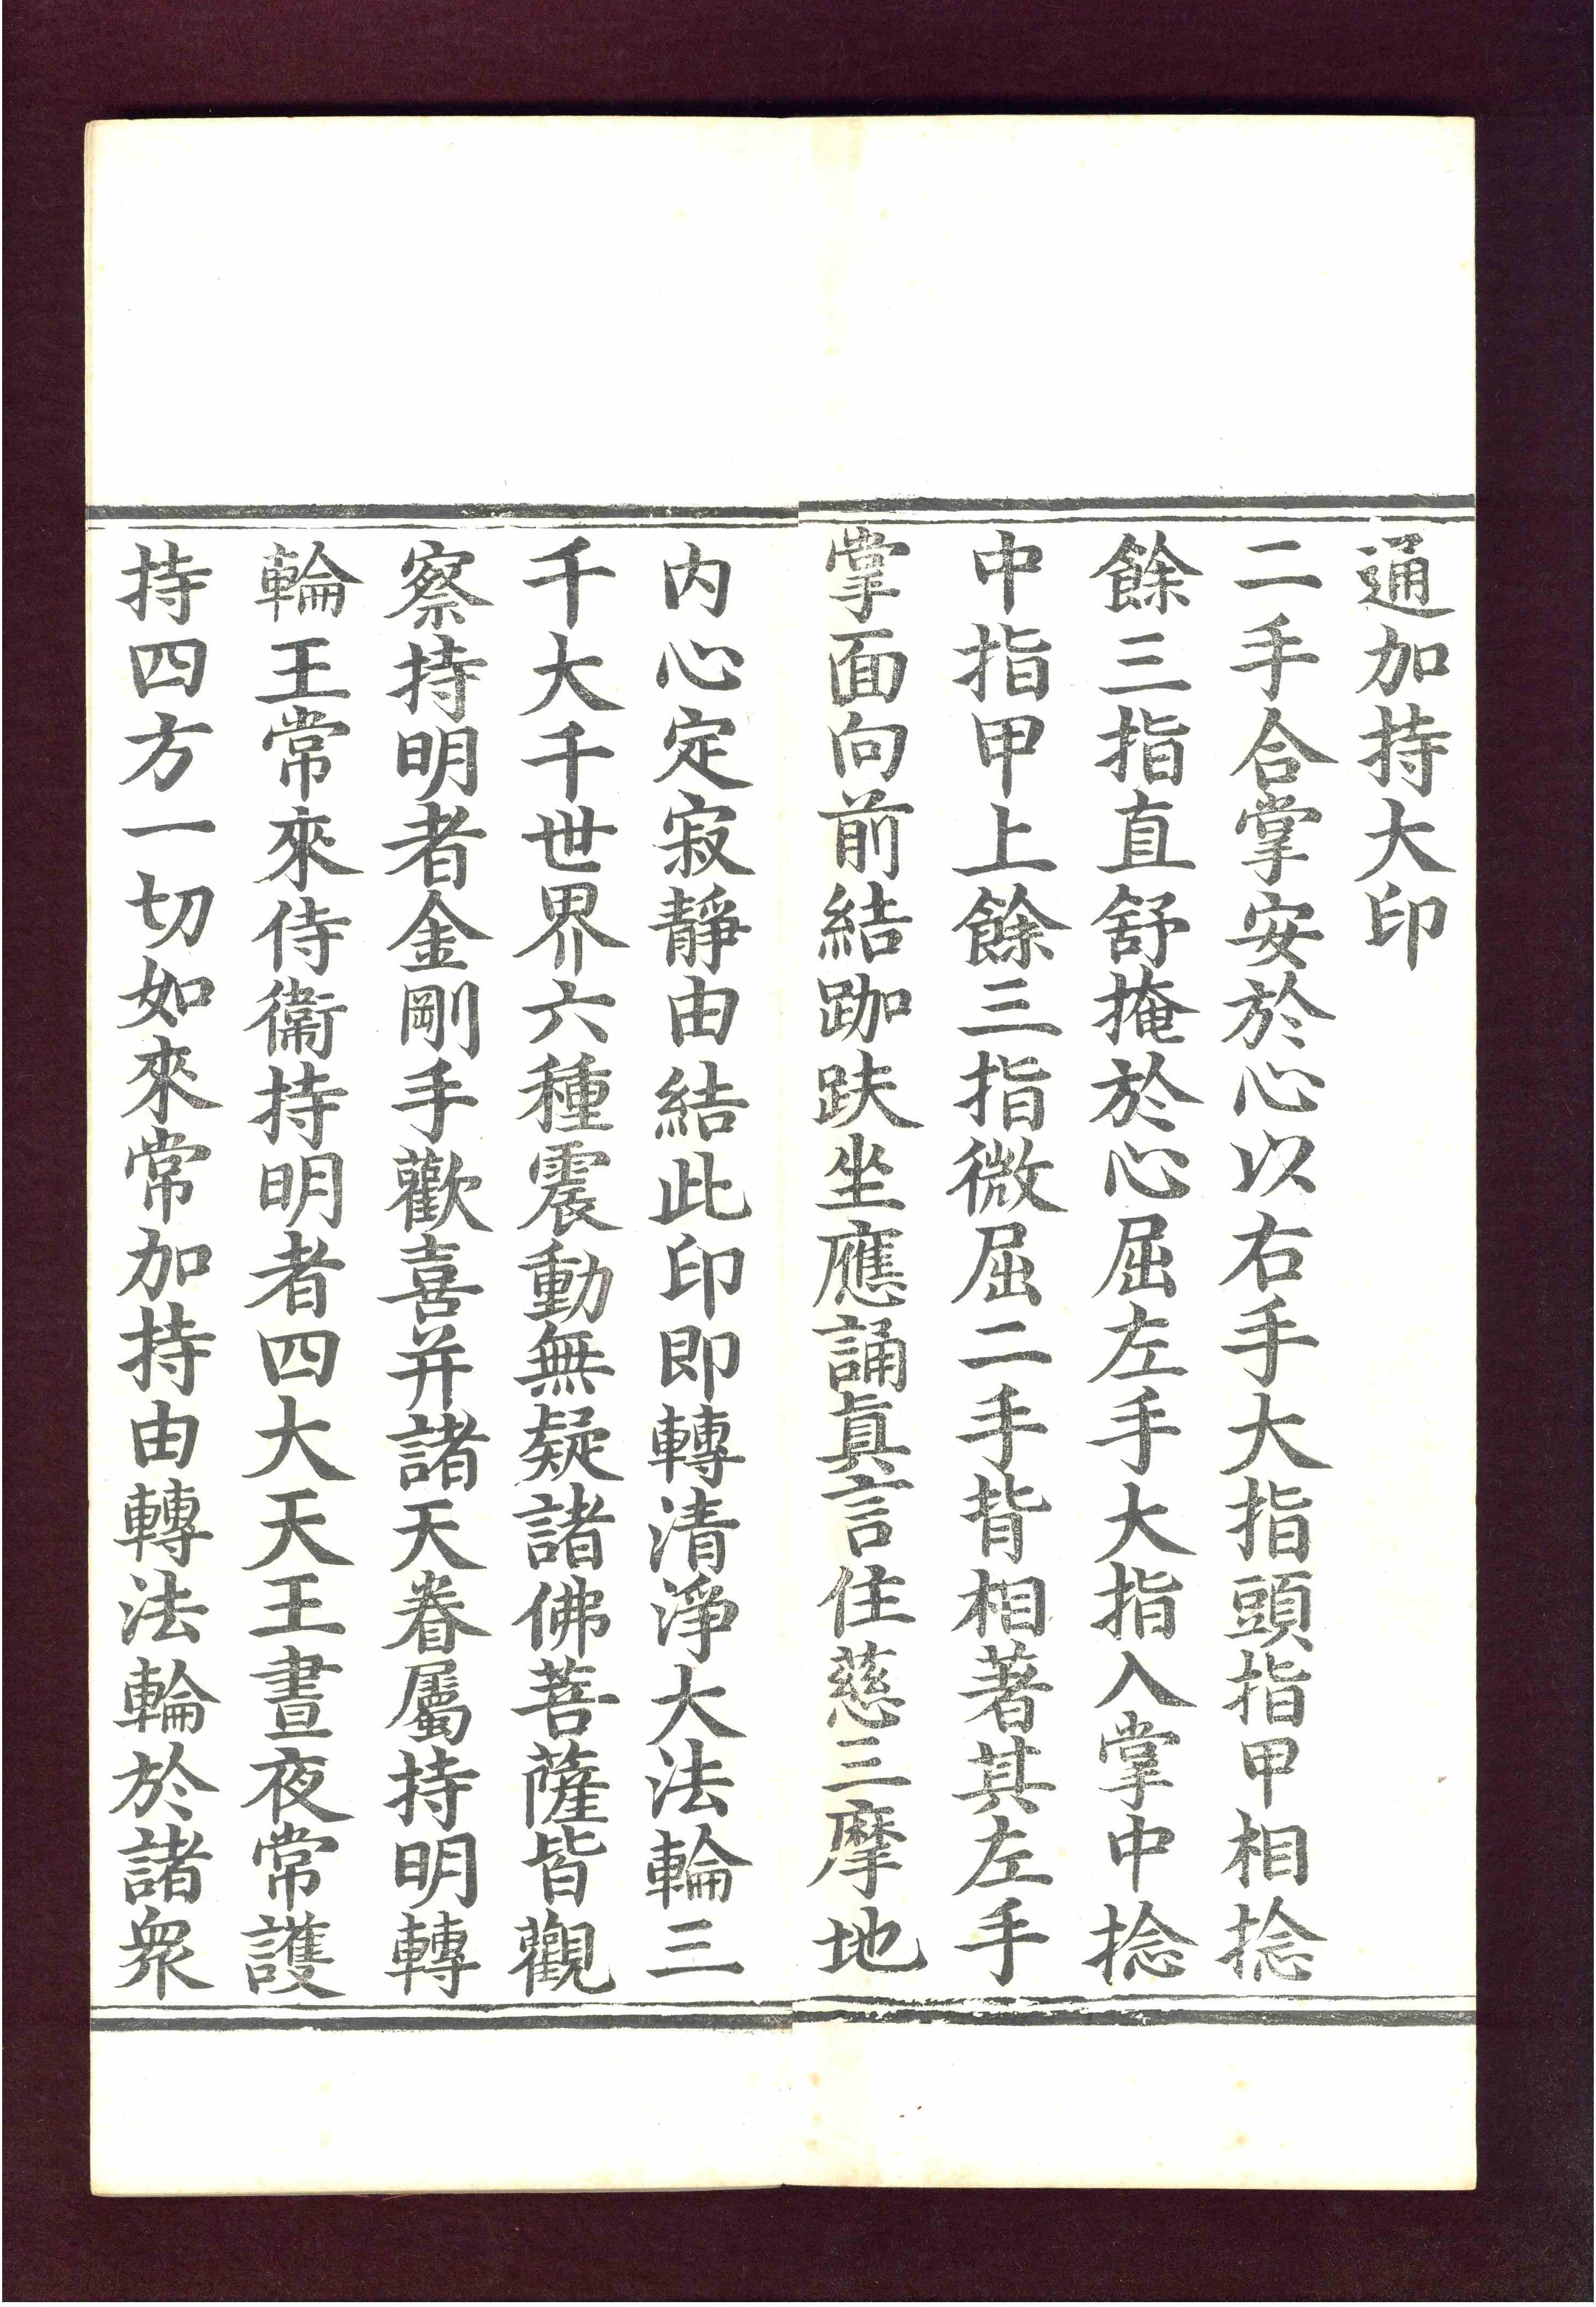 通加持大印
二手合掌安於心以右手大指頭指甲相捻
餘三指直舒掩於心屈左手大指入掌中捻
中指甲上餘三指微屈二手背相著其左手
掌面向前結跏趺坐應誦眞言住慈三摩地
内心定寂靜由結此印即轉清淨大法輪三
千大千世界六種震動無疑諸佛菩薩皆觀
察持明者金剛手歡喜并諸天眷屬持明轉
輪王常來侍衞持明者四大天王晝夜常護
持四方一切如來常加持由轉法輪於諸衆